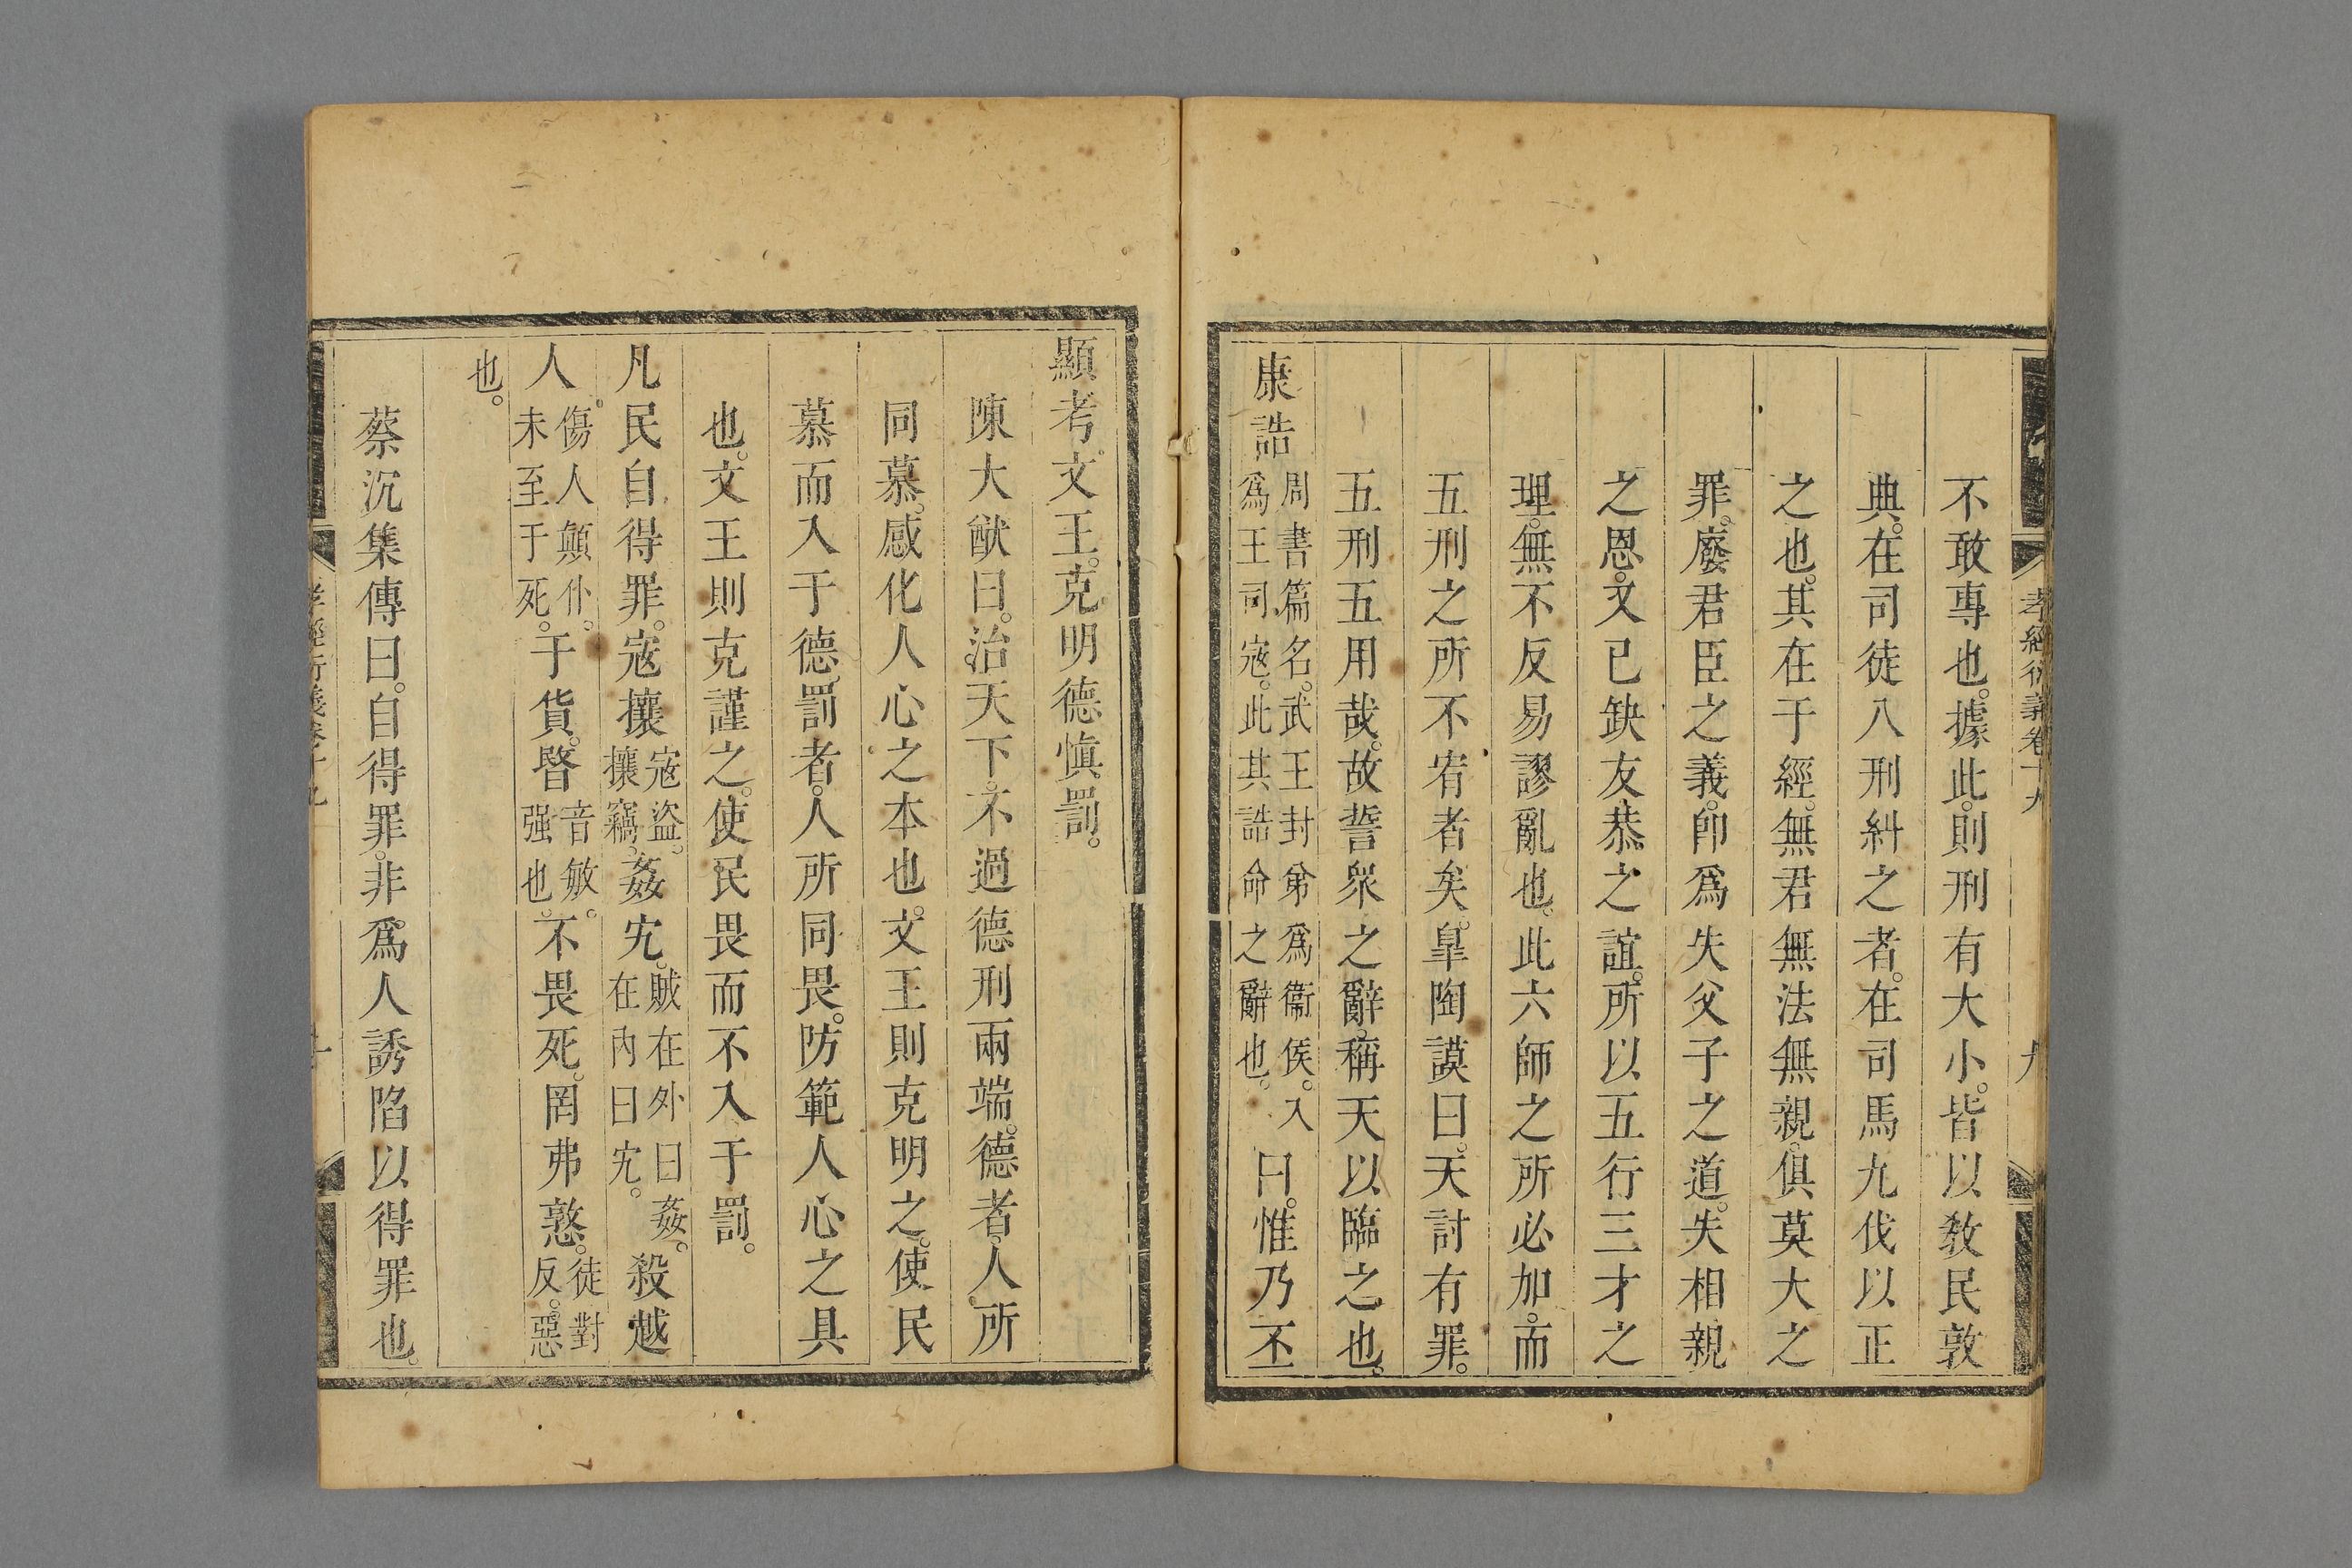 不敢專也。據此。則刑有大小。皆以敎民敦
典。在司徒八刑糾之者。在司馬九伐以正
之也。其在于經。無君無法無親。俱莫大之
罪。廢君臣之義。卽爲失父子之道。失相親
之恩。又已缺友恭之誼。所以五行三才之
理。無不反易謬亂也。此六師之所必加。而
五刑之所不宥者矣。臯陶謨曰。天討有罪。
五刑五用哉。故誓衆之辭。稱天以臨之也。
康誥周書篇名。武王封弟爲衞侯。入爲王司寇。此其誥命之辭也。曰。惟乃丕
孝經衍義卷十九 九
顯考文王。克明德愼罰。
陳大猷曰。治天下。不過德刑兩端。德者。人所
同慕。感化人心之本也。文王則克明之。使民
慕而入于德。罰者。人所同畏。防範人心之具
也。文王則克謹之。使民畏而不入于罰。
凡民自得罪。寇攘寇盜。攘竊。姦宄。賊在外曰姦。在內曰宄。殺越
人傷人顚仆。未至于死。于貨。暋音敏。强也。不畏死。罔弗憝。徒對反。惡
也。
蔡沉集傳曰。自得罪。非爲人誘陷以得罪也。